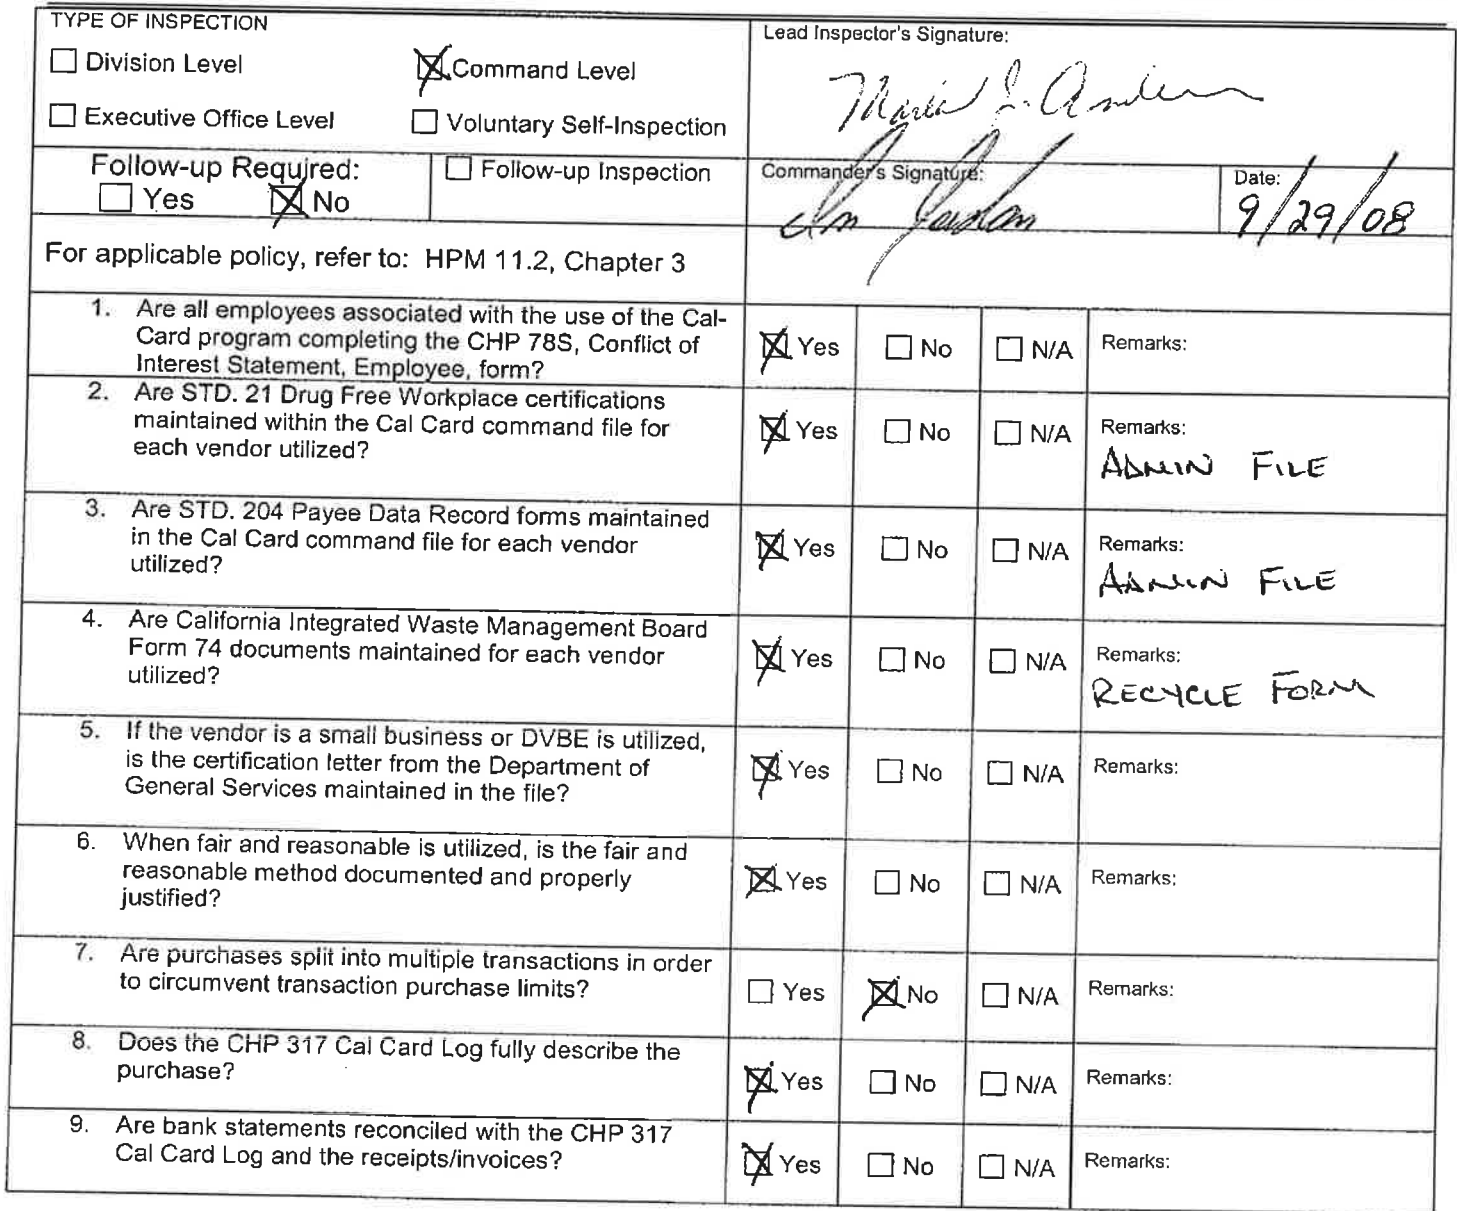 TYPE OF INSPECTION
Division Level
Command Level
Executive Office Level
Voluntary Self-Inspection
Lead Inspector's Signature:
Follow-up Required:
Yes
No
Follow-up Inspection
Commander's Signature:
Date:
9/29/08
For applicable policy, refer to: HPM 11.2, Chapter 3
1. Are all employees associated with the use of the Cal-
Card program completing the CHP 78S, Conflict of
Interest Statement, Employee, form?
Yes No N/A Remarks:
2. Are STD. 21 Drug Free Workplace certifications
maintained within the Cal Card command file for
each vendor utilized?
Yes No N/A Remarks:
ADMIN FILE
3. Are STD. 204 Payee Data Record forms maintained
in the Cal Card command file for each vendor
utilized?
Yes No N/A Remarks:
ADMIN FILE
4. Are California Integrated Waste Management Board
Form 74 documents maintained for each vendor
utilized?
Yes No N/A Remarks:
RECYCLE FORM
5. If the vendor is a small business or DVBE is utilized,
is the certification letter from the Department of
General Services maintained in the file?
Yes No N/A Remarks:
6. When fair and reasonable is utilized, is the fair and
reasonable method documented and properly
justified?
Yes No N/A Remarks:
7. Are purchases split into multiple transactions in order
to circumvent transaction purchase limits?
Yes No N/A Remarks:
8. Does the CHP 317 Cal Card Log fully describe the
purchase?
Yes No N/A Remarks:
9. Are bank statements reconciled with the CHP 317
Cal Card Log and the receipts/invoices?
Yes No N/A Remarks: